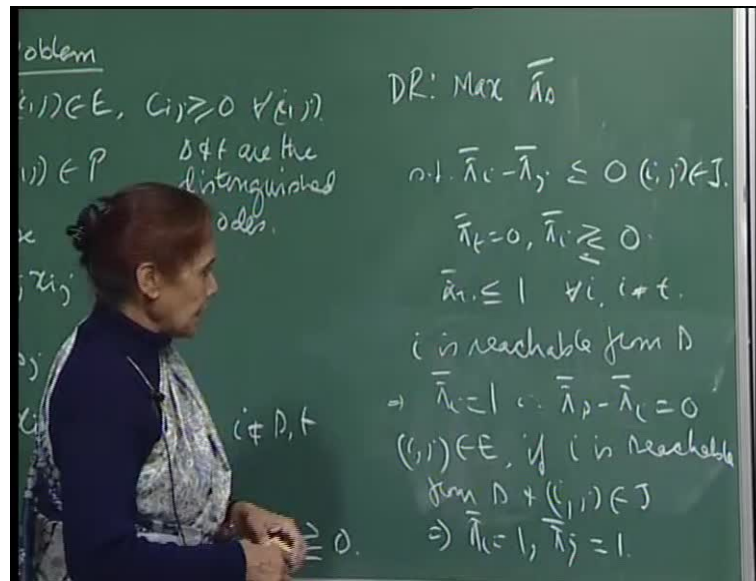 oblem
(i,j) ∈ E, Cij ≥ 0 ∀(i,j).
i,j) ∈ P
s & t are the
distinguished
odes.
xij
i ≠ s, t
≥ 0.
DR: Max π̄s
s.t. π̄i − π̄j ≤ 0 (i,j) ∈ J.
π̄t = 0, π̄i ⋛ 0.
π̄i ≤ 1 ∀i, i ≠ t.
i is reachable from s
⇒ π̄i = 1 ∵ π̄s − π̄i = 0
(i,j) ∈ E, if i is reachable
from s & (i,j) ∈ J
⇒ π̄i = 1, π̄j = 1.